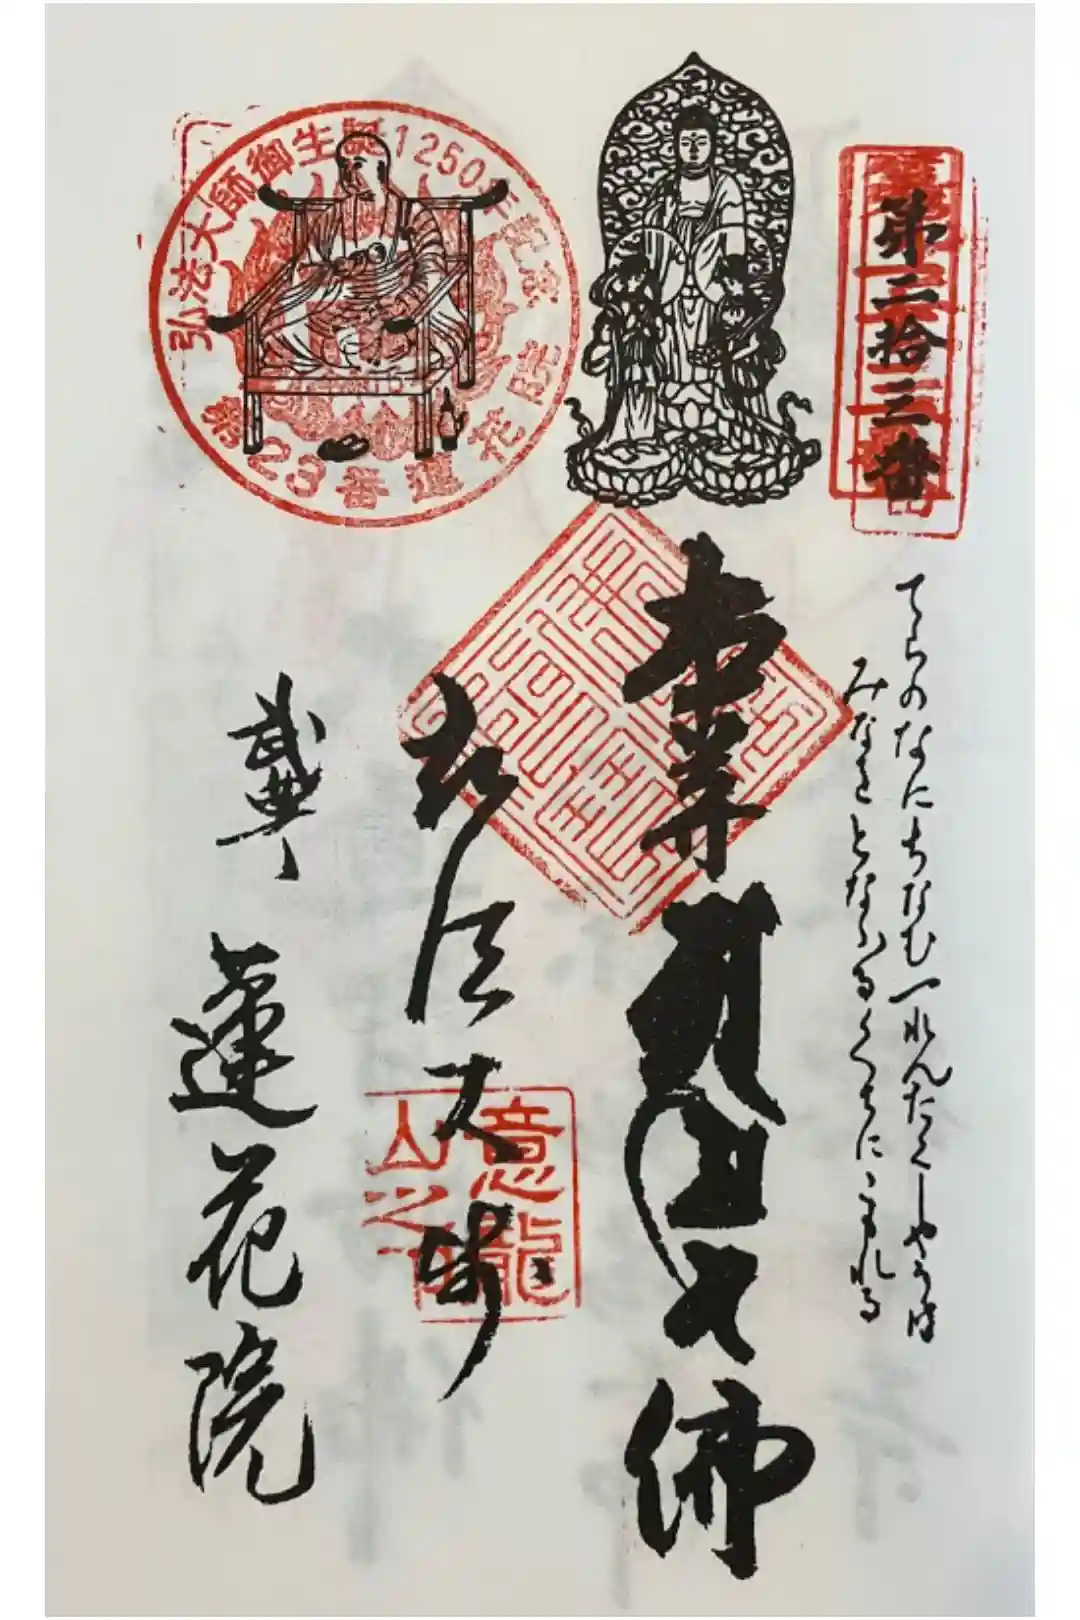 第二拾三番
てらのなにちなむ一れんたくしやうは
みなをとなふるくちにこもれる
本尊
佛
弘法大師
武州
蓮花院
弘法大師御生誕1250年記念
第23番蓮花院
意龍
山之印